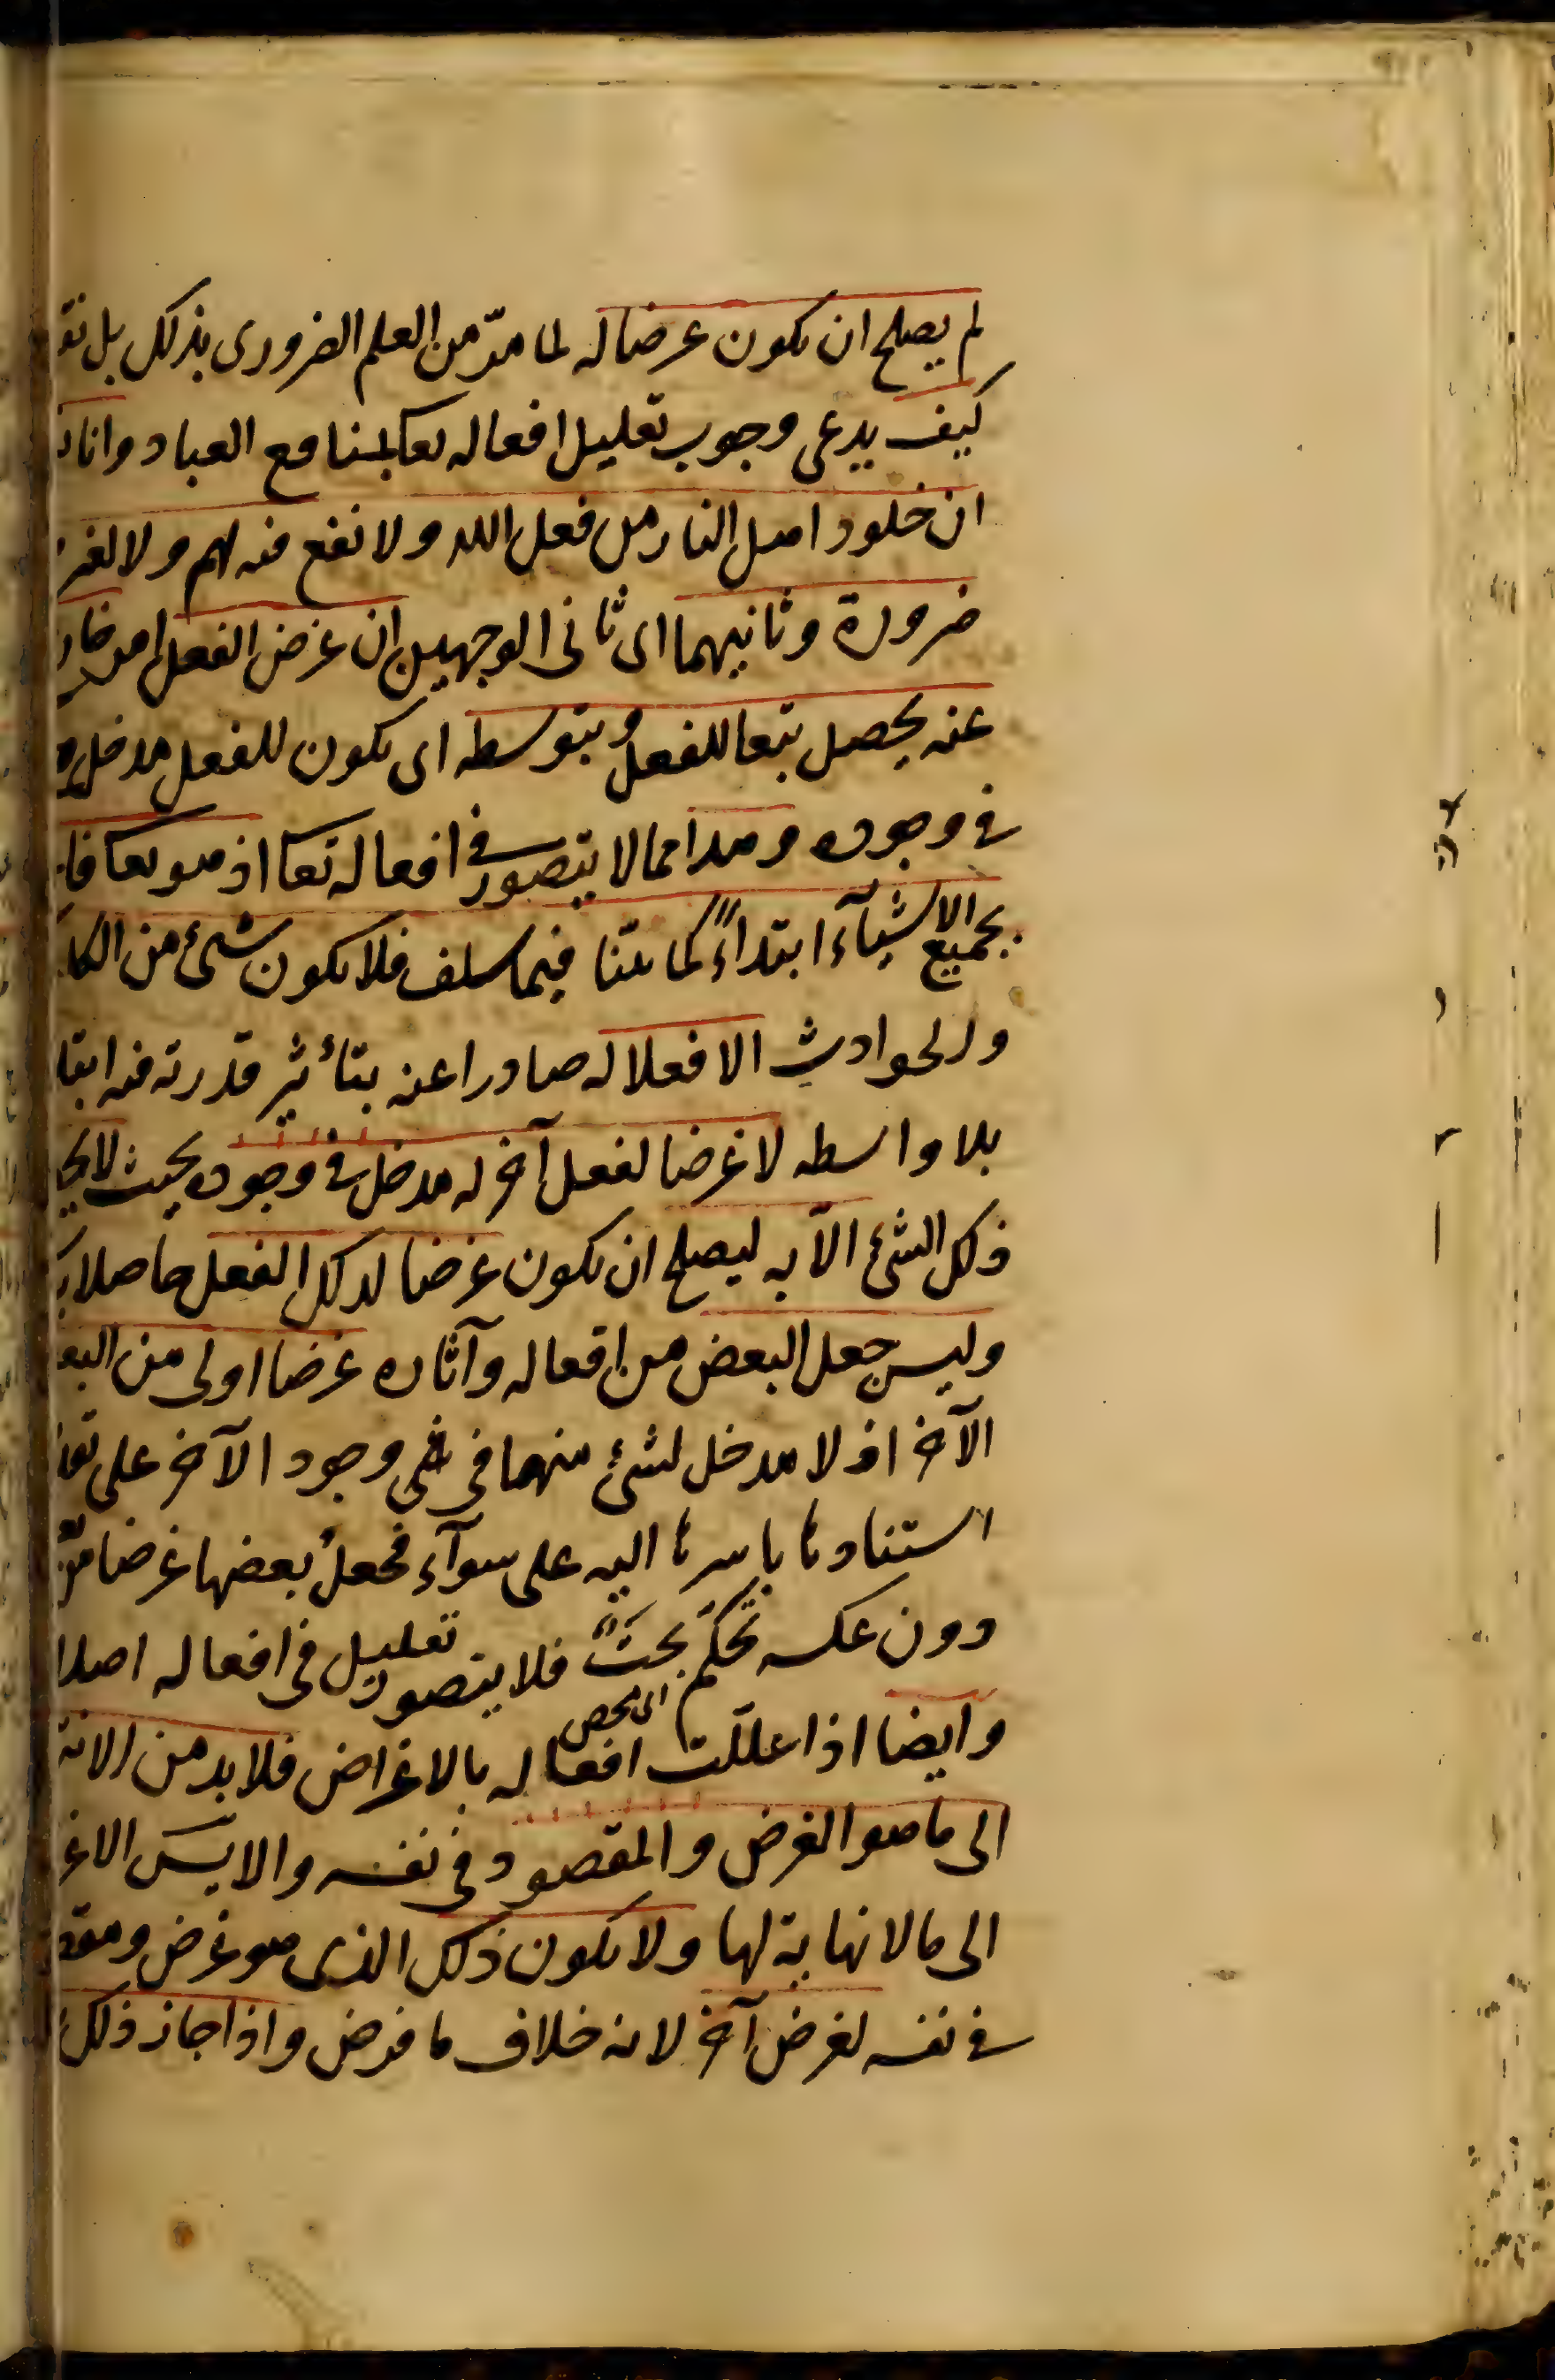 لم يصلح ان يكون غرضا له لما مرّ من العلم الضرورى بذلك بل نقو
كيف يدعى وجوب تعليل افعاله تعا بمنافع العباد وانا ن
ان خلود اهل النار من فعل الله ولا نفع فيه لهم ولا لغير
ضرورة وثانيهما اى ثانى الوجهين ان غرض الفعل امر خار
عنه يحصل تبعا للفعل وبتوسطه اى يكون للفعل مدخل
فى وجوده وهذا مما لا يتصور فى افعاله تعا اذ هو تعا فا
بجميع الاشيآء ابتداءً كما بينا فيما سلف فلا يكون شئ من الكا
والحوادث الا فعلا له صادرا عنه بتأثير قدرته فيه ابتدا
بلا واسطه لا غرضا لفعل آخر له مدخل فى وجوده بحيث لا يح
ذلك الشئ الّا به ليصلح ان يكون غرضا لذلك الفعل حاصلا ب
وليس جعل البعض من افعاله وآثاره غرضا اولى من البع
الآخر اذ لا مدخل لشئ منهما فى وجود الآخر على تقد
استنادها باسرها اليه على سوآء فجعلُ بعضها غرضا من
دون عكسه تحكّم بحتٌ فلا يتصور تعليل فى افعاله اصلا
اى محض
وايضا اذا علّلت افعاله بالاغراض فلا بد من الانت
الى ما هو الغرض والمقصود فى نفسه والا يتس الاغ
الى ما لا نهاية لها ولا يكون ذلك الذى هو غرض ومقص
فى نفسه لغرض آخر لانه خلاف ما فرض واذا جاز ذلك